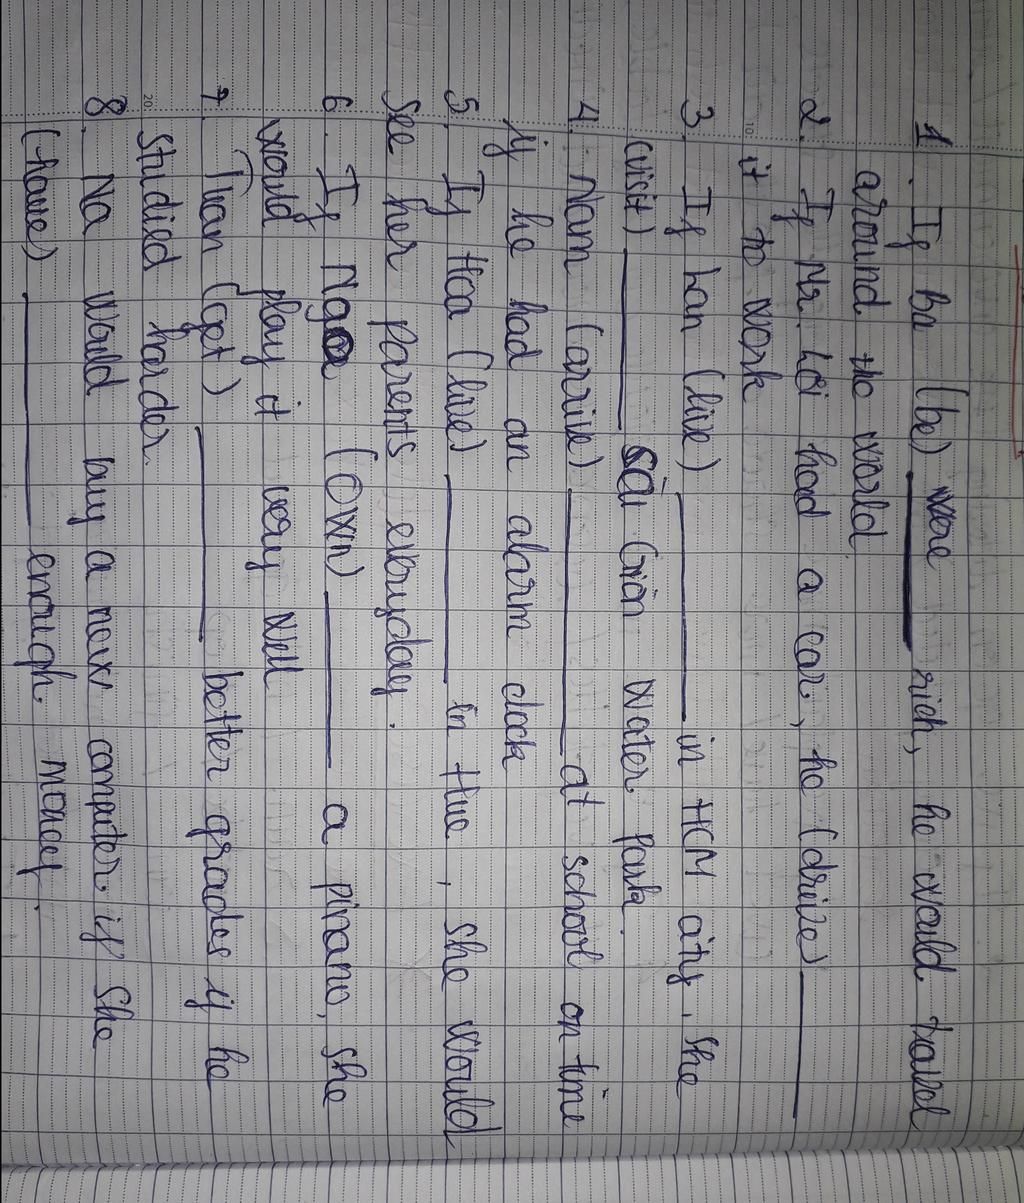 1. If ba (be) were ______ rich, he would travel
around the world.
2. If Mr. Lơi had a car, he (drive) ______
it to work
3. If Lan (live) ______ in HCM city, she
(visit) ______ Sài Gòn Water Park.
4. Nam (arrive) ______ at school on time
if he had an alarm clock
5. If Hoa (live) ______ in Hue, she would
see her parents everyday.
6. If Ngoc (own) ______ a pinano, she
would play it very well
7. Than (get) ______ better grades if he
studied harder.
8. Na would buy a new computer if she
(have) ______ enough. money.
10
20